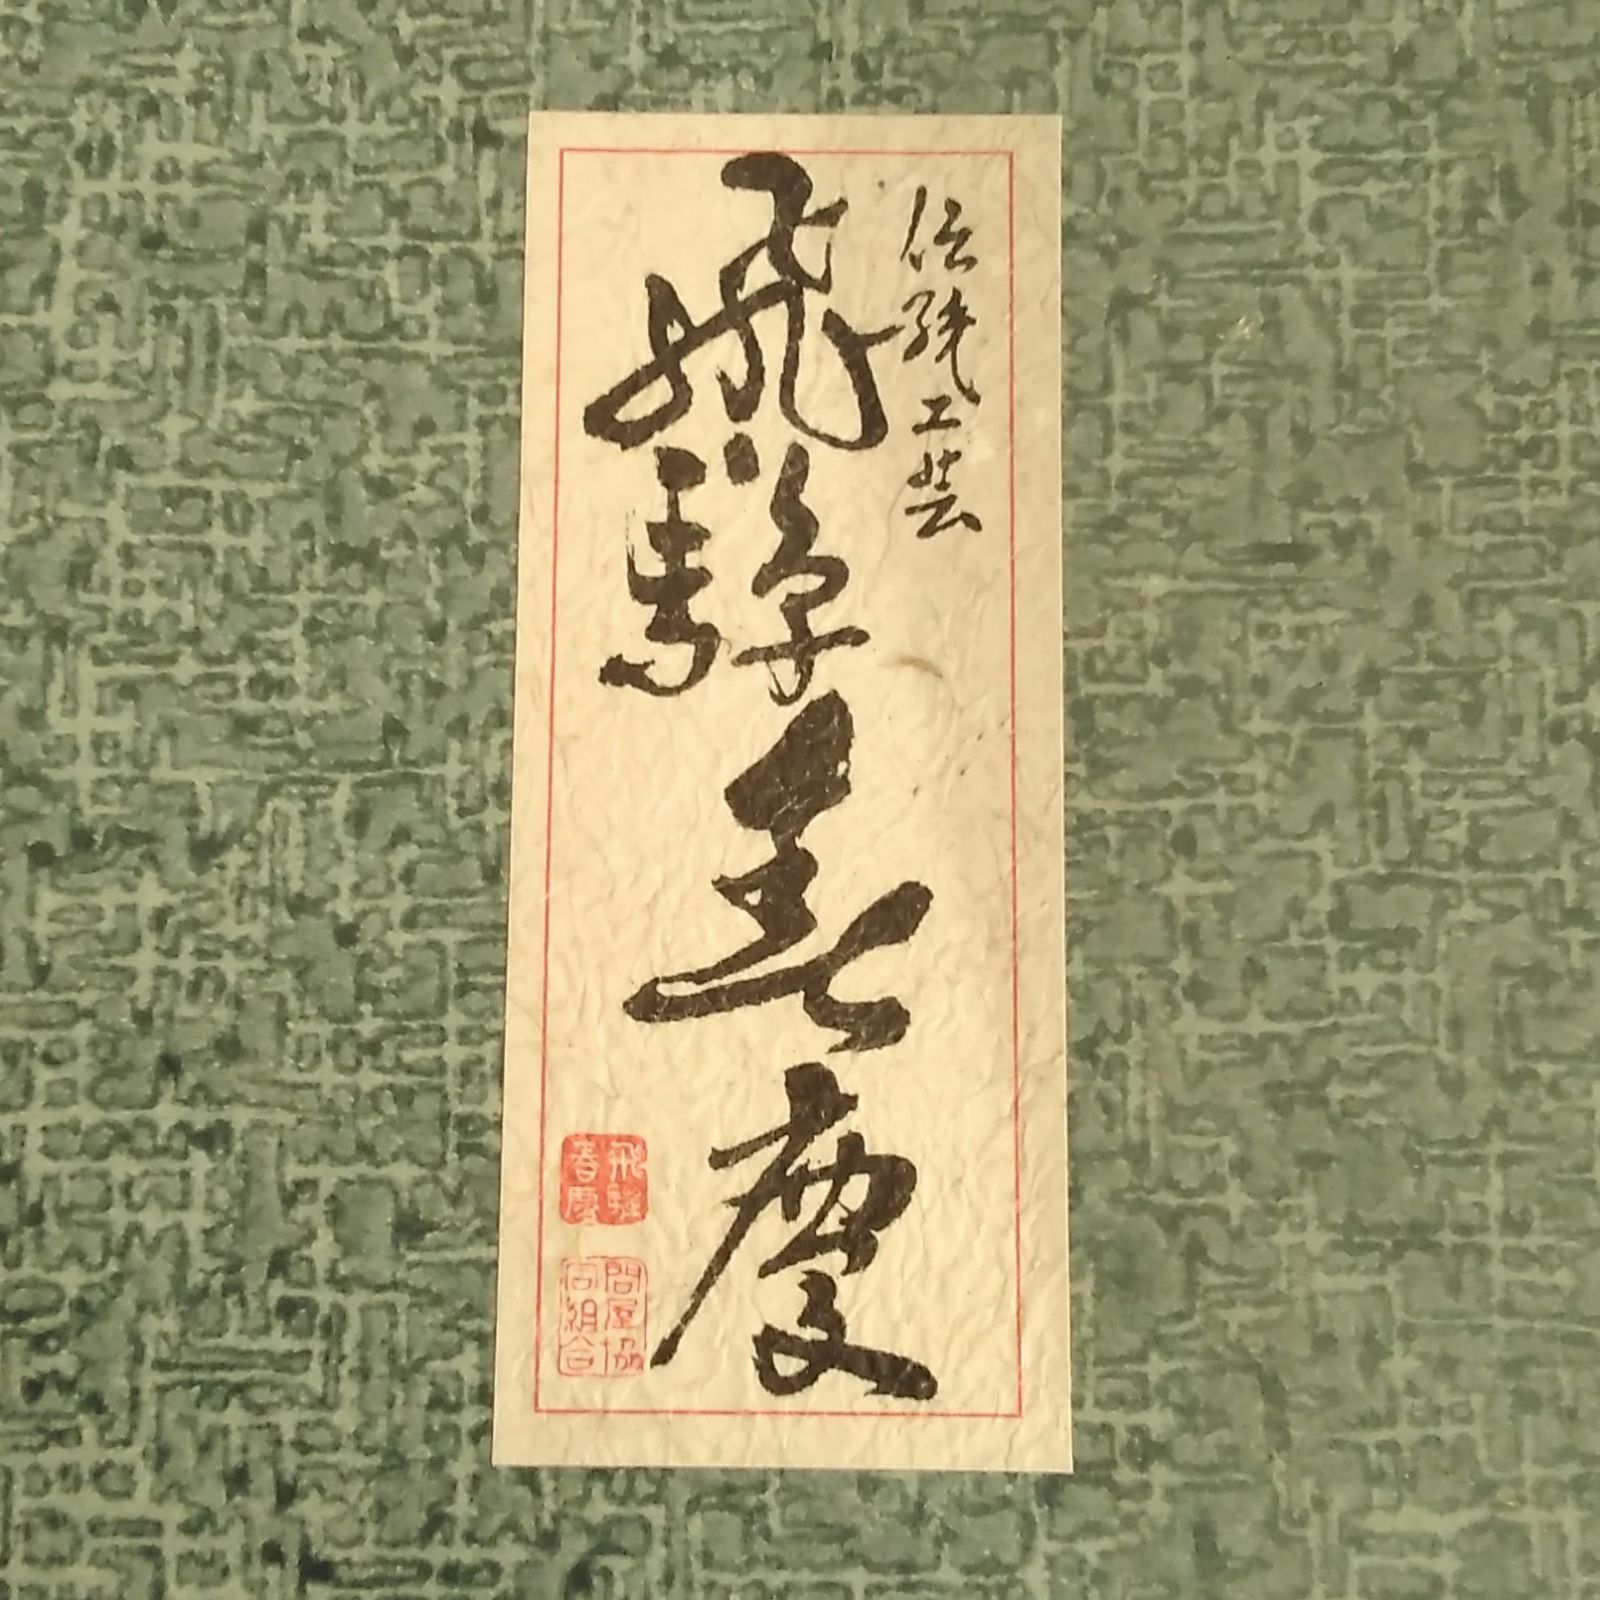 伝統工芸
飛騨春慶
飛騨
春慶
問屋協
同組合